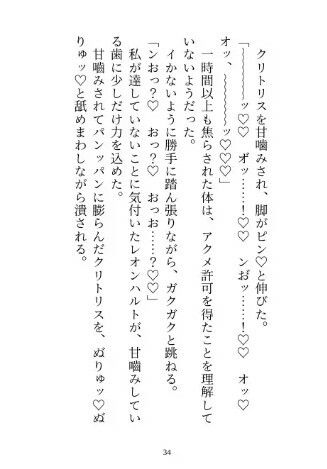 クリトリスを甘嚙みされ、脚がピン♡と伸びた。
「～～～～ッ♡♡　オ゛ッ……！♡♡　ンお゛ッ……！♡♡　オッ♡
オッ、～～～～～ッ♡♡♡」
一時間以上も焦らされた体は、アクメ許可を得たことを理解して
いないようだった。
イかないように勝手に踏ん張りながら、ガクガクと跳ねる。
「ンおっ？♡　おっ？♡　おっお……？♡♡」
私が達していないことに気付いたレオンハルトが、甘嚙みしてい
る歯に少しだけ力を込めた。
甘嚙みされてパンッパンに膨らんだクリトリスを、ぬ゛りゅッ♡ぬ゛
りゅッ♡と舐めまわしながら潰される。
34